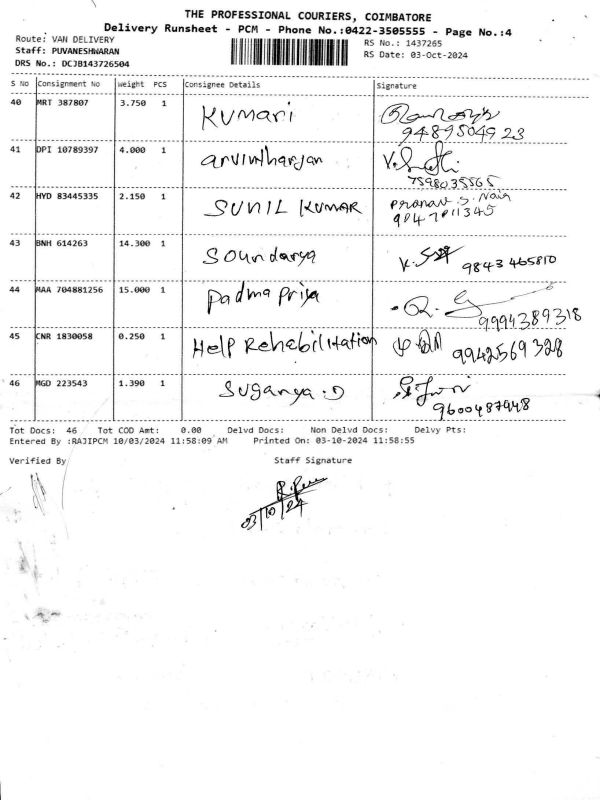 THE PROFESSIONAL COURIERS, COIMBATORE
Delivery Runsheet - PCM - Phone No.:0422-3505555 - Page No.:4
Route: VAN DELIVERY
Staff: PUVANESHWARAN
DRS No.: DCJB143726504
RS No.: 1437265
RS Date: 03-Oct-2024
S No Consignment No Weight PCS Consignee Details Signature
40 MRT 387807 3.750 1 Kumari
9489504923
41 DPI 10789397 4.000 1 arvintharjan
7598035565
42 HYD 83445335 2.150 1 SUNIL KUMAR Pranav.S.Nair
9047011345
43 BNH 614263 14.300 1 Soundarya 9843465810
44 MAA 704881256 15.000 1 Padma Priya
9994389318
45 CNR 1830058 0.250 1 Help Rehabilitation 9942569328
46 MGD 223543 1.390 1 Suganya.D
9600487948
Tot Docs: 46 Tot COD Amt: 0.00 Delvd Docs: Non Delvd Docs: Delvy Pts:
Entered By :RAJIPCM 10/03/2024 11:58:09 AM Printed On: 03-10-2024 11:58:55
Verified By Staff Signature
03/10/24